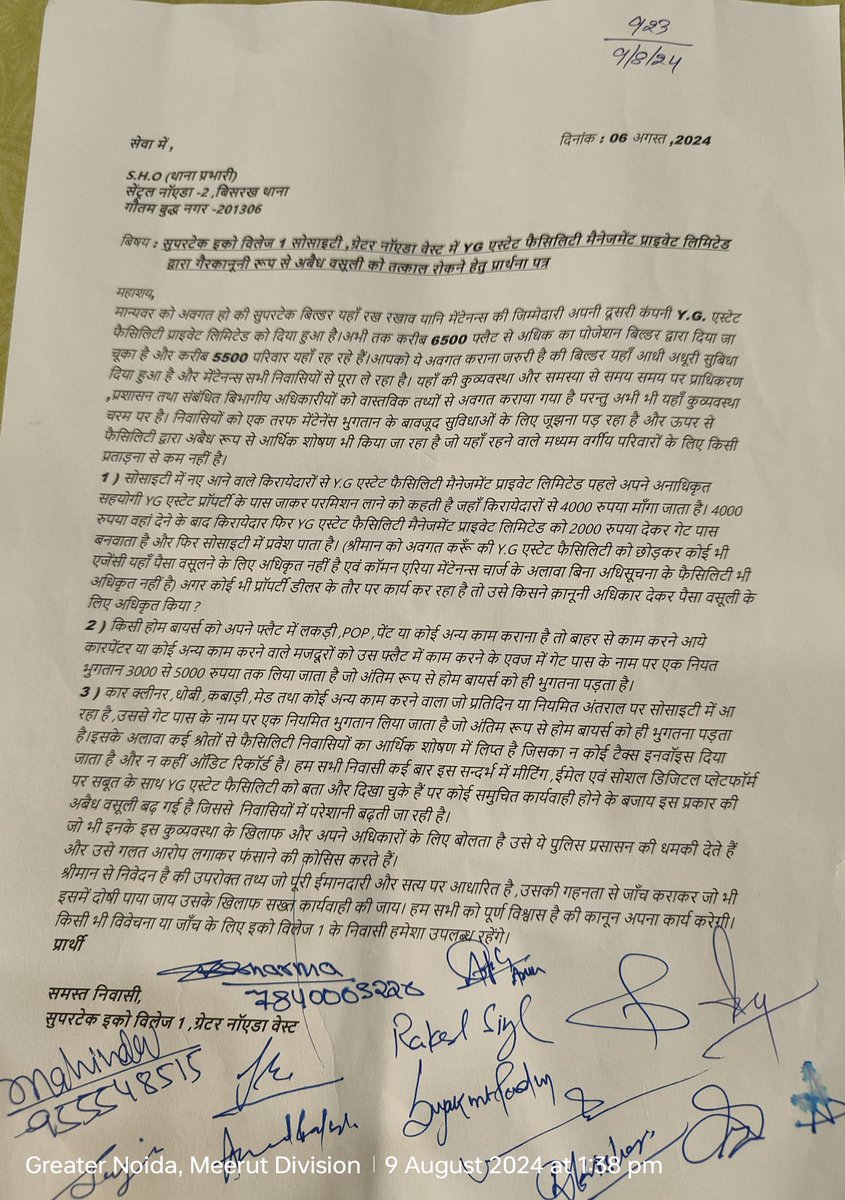 923
9/8/24
सेवा में ,
दिनांक : 06 अगस्त ,2024
S.H.O (थाना प्रभारी)
सेंट्रल नॉएडा -2 ,बिसरख थाना
गौतम बुद्ध नगर -201306
बिषय : सुपरटेक इको विलेज 1 सोसाइटी ,ग्रेटर नॉएडा वेस्ट में YG एस्टेट फैसिलिटी मैनेजमेंट प्राइवेट लिमिटेड
द्वारा गैरकानूनी रूप से अबैध वसूली को तत्काल रोकने हेतु प्रार्थना पत्र
महाशय,
मान्यवर को अवगत हो की सुपरटेक बिल्डर यहाँ रख रखाव यानि मेंटेनन्स की जिम्मेदारी अपनी दूसरी कंपनी Y.G. एस्टेट
फैसिलिटी प्राइवेट लिमिटेड को दिया हुआ है।अभी तक करीब 6500 फ्लैट से अधिक का पोजेशन बिल्डर द्वारा दिया जा
चूका है और करीब 5500 परिवार यहाँ रह रहे हैं।आपको ये अवगत कराना जरुरी है की बिल्डर यहाँ आधी अधूरी सुबिधा
दिया हुआ है और मेंटेनन्स सभी निवासियों से पूरा ले रहा है। यहाँ की कुव्यवस्था और समस्या से समय समय पर प्राधिकरण
,प्रशासन तथा संबंधित बिभागीय अधिकारीयों को वास्तविक तथ्यों से अवगत कराया गया है परन्तु अभी भी यहाँ कुव्यवस्था
चरम पर है। निवासियों को एक तरफ मेंटेनेंस भुगतान के बावजूद सुविधाओं के लिए जूझना पड़ रहा है और ऊपर से
फैसिलिटी द्वारा अबैध रूप से आर्थिक शोषण भी किया जा रहा है जो यहाँ रहने वाले मध्यम वर्गीय परिवारों के लिए किसी
प्रताड़ना से कम नहीं है।
1 ) सोसाइटी में नए आने वाले किरायेदारों से Y.G एस्टेट फैसिलिटी मैनेजमेंट प्राइवेट लिमिटेड पहले अपने अनाधिकृत
सहयोगी YG एस्टेट प्रॉपर्टी के पास जाकर परमिशन लाने को कहती है जहाँ किरायेदारों से 4000 रुपया माँगा जाता है। 4000
रुपया वहां देने के बाद किरायेदार फिर YG एस्टेट फैसिलिटी मैनेजमेंट प्राइवेट लिमिटेड को 2000 रुपया देकर गेट पास
बनवाता है और फिर सोसाइटी में प्रवेश पाता है। (श्रीमान को अवगत करूँ की Y.G एस्टेट फैसिलिटी को छोड़कर कोई भी
एजेंसी यहाँ पैसा वसूलने के लिए अधिकृत नहीं है एवं कॉमन एरिया मेंटेनन्स चार्ज के अलावा बिना अधिसूचना के फैसिलिटी भी
अधिकृत नहीं है) अगर कोई भी प्रॉपर्टी डीलर के तौर पर कार्य कर रहा है तो उसे किसने क़ानूनी अधिकार देकर पैसा वसूली के
लिए अधिकृत किया ?
2 ) किसी होम बायर्स को अपने फ्लैट में लकड़ी ,POP ,पेंट या कोई अन्य काम कराना है तो बाहर से काम करने आये
कारपेंटर या कोई अन्य काम करने वाले मजदूरों को उस फ्लैट में काम करने के एवज में गेट पास के नाम पर एक नियत
भुगतान 3000 से 5000 रुपया तक लिया जाता है जो अंतिम रूप से होम बायर्स को ही भुगतना पड़ता है।
3 ) कार क्लीनर ,धोबी ,कबाड़ी ,मेड तथा कोई अन्य काम करने वाला जो प्रतिदिन या नियमित अंतराल पर सोसाइटी में आ
रहा है ,उससे गेट पास के नाम पर एक नियमित भुगतान लिया जाता है जो अंतिम रूप से होम बायर्स को ही भुगतना पड़ता
है।इसके अलावा कई श्रोतों से फैसिलिटी निवासियों का आर्थिक शोषण में लिप्त है जिसका न कोई टैक्स इनवॉइस दिया
जाता है और न कहीं ऑडिट रिकॉर्ड है। हम सभी निवासी कई बार इस सन्दर्भ में मीटिंग ,ईमेल एवं सोशल डिजिटल प्लेटफॉर्म
पर सबूत के साथ YG एस्टेट फैसिलिटी को बता और दिखा चुके हैं पर कोई समुचित कार्यवाही होने के बजाय इस प्रकार की
अबैध वसूली बढ़ गई है जिससे निवासियों में परेशानी बढ़ती जा रही है।
जो भी इनके इस कुव्यवस्था के खिलाफ और अपने अधिकारों के लिए बोलता है उसे ये पुलिस प्रसासन की धमकी देते हैं
और उसे गलत आरोप लगाकर फंसाने की कोसिस करते हैं।
श्रीमान से निवेदन है की उपरोक्त तथ्य जो पूरी ईमानदारी और सत्य पर आधारित है ,उसकी गहनता से जाँच कराकर जो भी
इसमें दोषी पाया जाय उसके खिलाफ सख्त कार्यवाही की जाय। हम सभी को पूर्ण विश्वास है की कानून अपना कार्य करेगी।
किसी भी विवेचना या जाँच के लिए इको विलेज 1 के निवासी हमेशा उपलब्ध रहेंगे।
प्रार्थी
sharma
7840003228
समस्त निवासी,
सुपरटेक इको विलेज 1 ,ग्रेटर नॉएडा वेस्ट
Rakesh Singh
Mahinder
955548515
Greater Noida, Meerut Division | 9 August 2024 at 1:38 pm